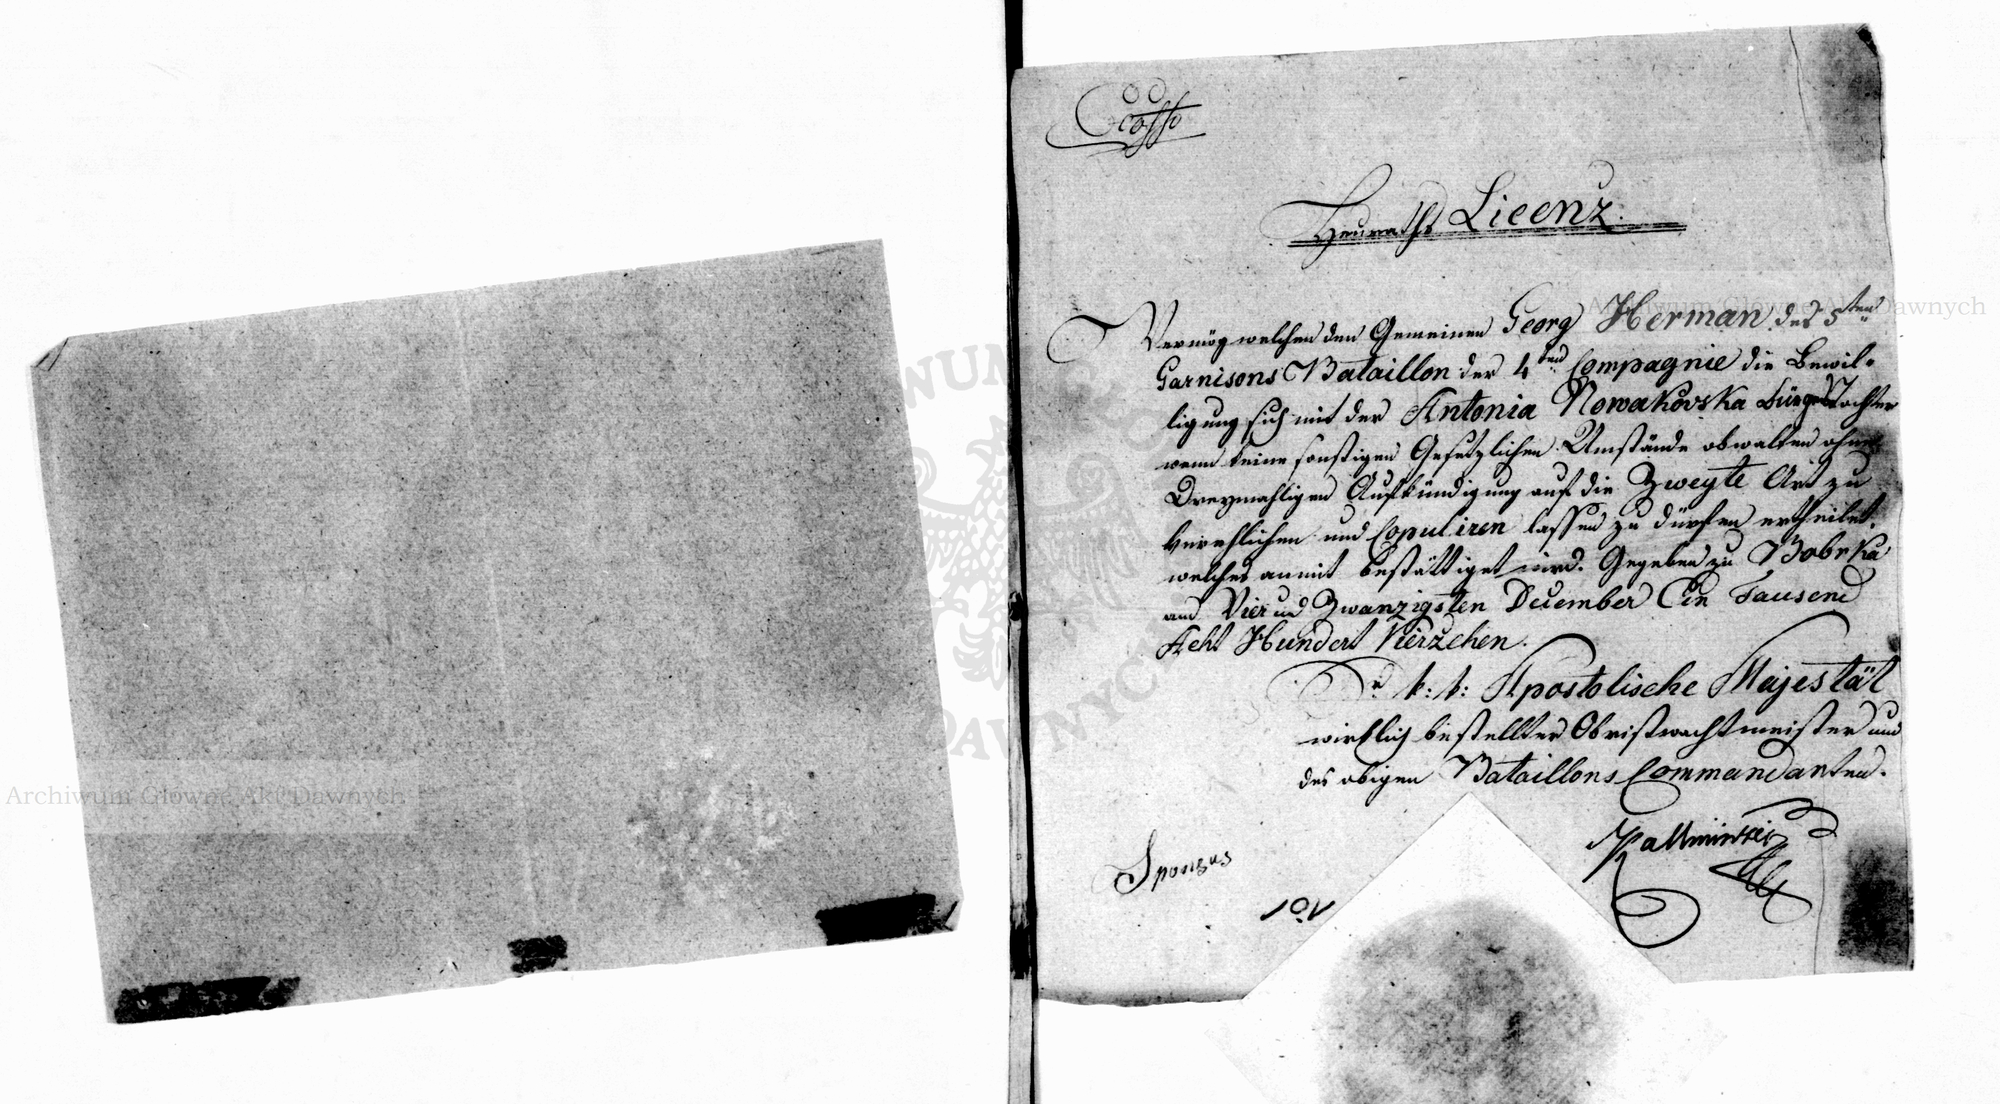 Heuraths Licenz.
Vermög welchen dem Gemeinen Georg Herman des 5ten
Garnisons Bataillon der 4ten Compagnie die Bewil-
ligung sich mit der Antonia Nowakovska Bürgerstochter
wenn keine sonstigen Gesetzlichen Umstände obwalten ohne
Dreymahligen Aufkündigung auf die Zweyte Art zu
verehlichen und Copuliren lassen zu dürfen ertheilet,
welches anmit bestättiget wird. Gegeben zu Bobrka
am Vier und Zwanzigsten December Ein Tausend
Acht Hundert Vierzehen.
Sr k: k: Apostolische Majestät
wirklich bestellter Obristwachtmeister und
des obigen Bataillons Commandanten.
Sponsus
Archiwum Główne Akt Dawnych
Archiwum Główne Akt Dawnych